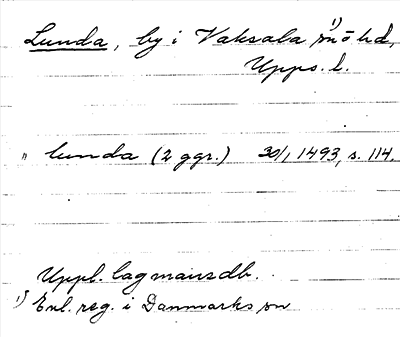 Lunda, by i Vaksala sn¹⁾ o hd,
Upps. l.
" lunda (2 ggr.) 30/1 1493, s. 114.
Uppl. lagmansdb.
¹⁾ Enl. reg. i Danmarks sn